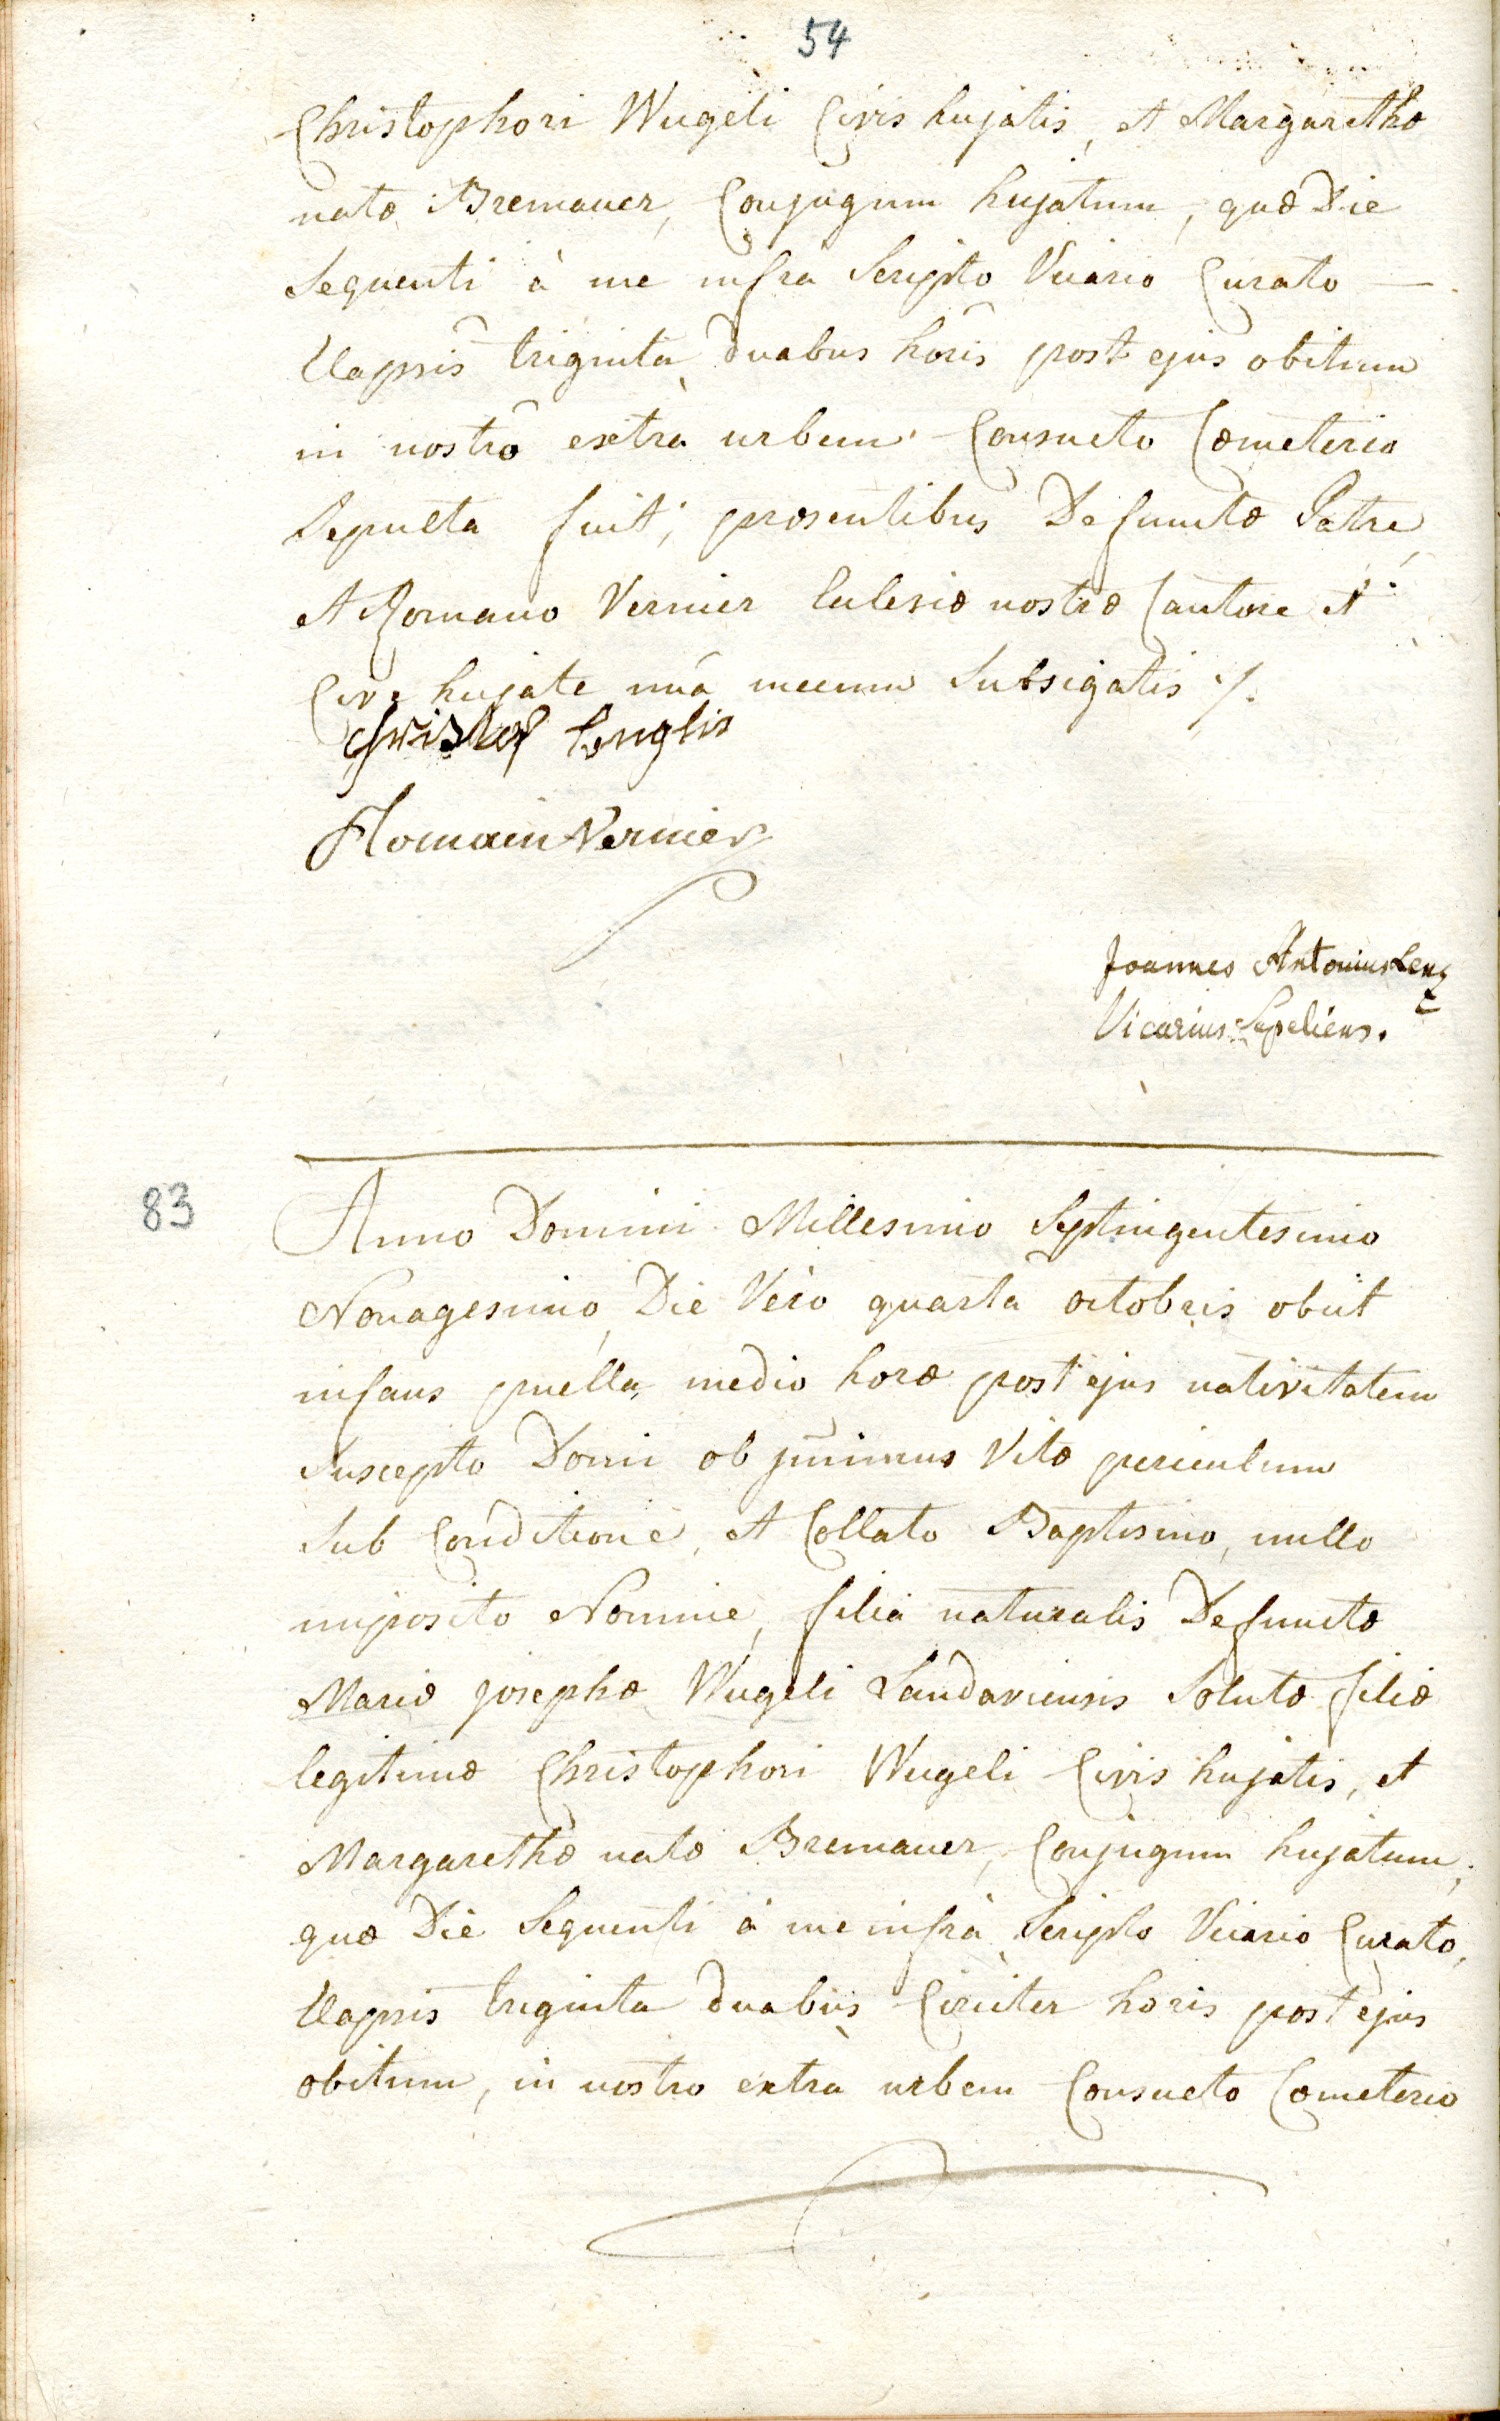 54
Christophori Wugeli Civis hujatis, et Margarethæ
natæ Bremauer, Conjugum hujatum, quæ Die
Sequenti à me infra Scripto Vicario Curato —
Elapsis triginta duabus horis post ejus obitum
in nostro extra urbem Consueto Cœmeterio
Sepulta fuit, præsentibus Defunctæ Patre,
et Romano Vernier Ecclesiæ nostræ Cantore et
Cive hujate unà mecum Subsigatis ./.
Romain Vernier
Joannes Antonius Lenz
Vicarius Sepeliens.
83
Anno Domini Millesimo Septingentesimo
Nonagesimo, Die Verò quarta octobris obiit
infans puella, medio horæ post ejus nativitatem
Suscepto Domi ob Vitæ periculum
Sub Conditione, et Collato Baptismo, nullo
imposito Nomine, filia naturalis Defunctæ
Mariæ Josephæ Wugeli Landaviensis Solutæ filiæ
legitimæ Christophori Wugeli Civis hujatis, et
Margarethæ natæ Bremauer, Conjugum hujatum,
quæ Die Sequenti à me infrà Scripto Vicario Curato,
Elapsis triginta duabus Circiter horis post ejus
obitum, in nostro extra urbem Consueto Cœmeterio